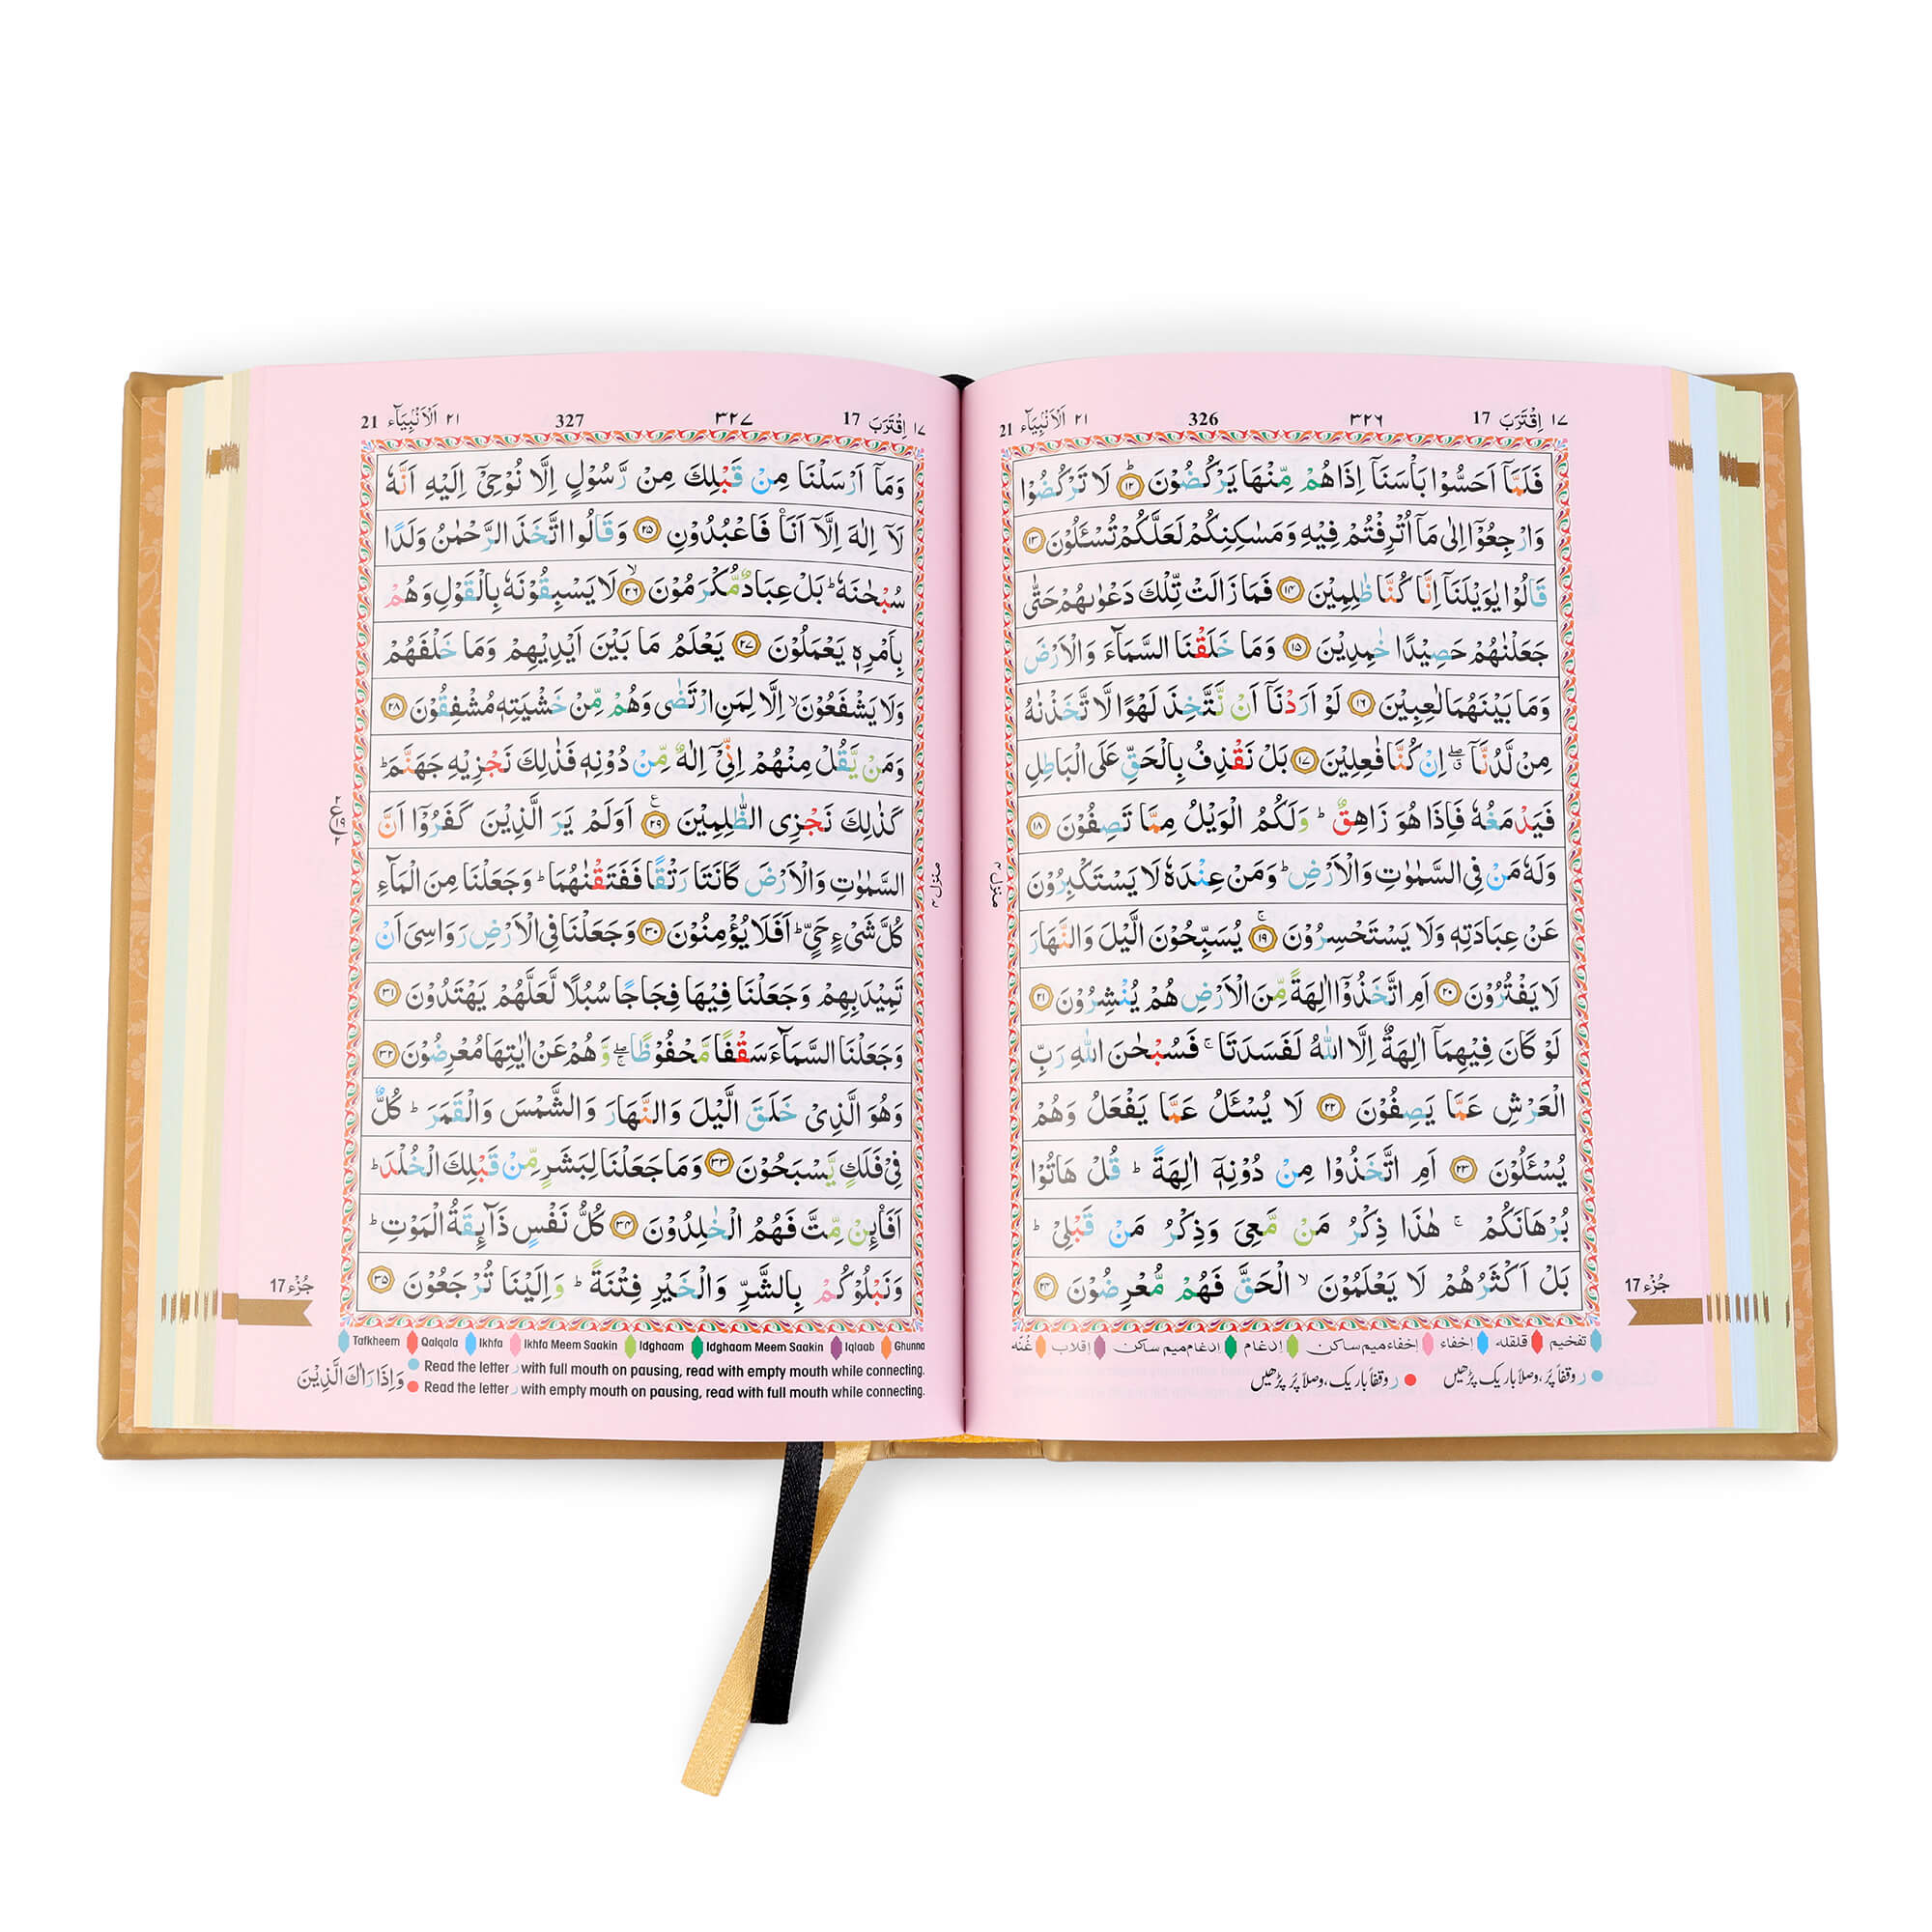 ١٧ اِقْتَرَبَ 17 ٣٢٦ 326 ٢١ اَلْاَنْۢبِيَآء 21
فَلَمَّاۤ اَحَسُّوْا بَاْسَنَاۤ اِذَا هُمْ مِّنْهَا يَرْكُضُوْنَ ؕ ﴿۱۲﴾ لَا تَرْكُضُوْا
وَارْجِعُوْۤا اِلٰى مَاۤ اُتْرِفْتُمْ فِيْهِ وَمَسٰكِنِكُمْ لَعَلَّكُمْ تُسْـَٔلُوْنَ ﴿۱۳﴾
قَالُوْا يٰوَيْلَنَاۤ اِنَّا كُنَّا ظٰلِمِيْنَ ﴿۱۴﴾ فَمَا زَالَتْ تِّلْكَ دَعْوٰىهُمْ حَتّٰى
جَعَلْنٰهُمْ حَصِيْدًا خٰمِدِيْنَ ﴿۱۵﴾ وَمَا خَلَقْنَا السَّمَآءَ وَالْاَرْضَ
وَمَا بَيْنَهُمَا لٰعِبِيْنَ ﴿۱۶﴾ لَوْ اَرَدْنَاۤ اَنْ نَّتَّخِذَ لَهْوًا لَّا تَّخَذْنٰهُ
مِنْ لَّدُنَّاۤ ۖ اِنْ كُنَّا فٰعِلِيْنَ ﴿۱۷﴾ بَلْ نَقْذِفُ بِالْحَقِّ عَلَى الْبَاطِلِ
فَيَدْمَغُهٗ فَاِذَا هُوَ زَاهِقٌ ؕ وَلَكُمُ الْوَيْلُ مِمَّا تَصِفُوْنَ ﴿۱۸﴾
وَلَهٗ مَنْ فِى السَّمٰوٰتِ وَالْاَرْضِ ؕ وَمَنْ عِنْدَهٗ لَا يَسْتَكْبِرُوْنَ
عَنْ عِبَادَتِهٖ وَلَا يَسْتَحْسِرُوْنَ ۚ ﴿۱۹﴾ يُسَبِّحُوْنَ الَّيْلَ وَالنَّهَارَ
لَا يَفْتُرُوْنَ ﴿۲۰﴾ اَمِ اتَّخَذُوْۤا اٰلِهَةً مِّنَ الْاَرْضِ هُمْ يُنْشِرُوْنَ ﴿۲۱﴾
لَوْ كَانَ فِيْهِمَاۤ اٰلِهَةٌ اِلَّا اللّٰهُ لَفَسَدَتَا ۚ فَسُبْحٰنَ اللّٰهِ رَبِّ
الْعَرْشِ عَمَّا يَصِفُوْنَ ﴿۲۲﴾ لَا يُسْـَٔلُ عَمَّا يَفْعَلُ وَهُمْ
يُسْـَٔلُوْنَ ﴿۲۳﴾ اَمِ اتَّخَذُوْا مِنْ دُوْنِهٖۤ اٰلِهَةً ؕ قُلْ هَاتُوْا
بُرْهَانَكُمْ ۚ هٰذَا ذِكْرُ مَنْ مَّعِىَ وَذِكْرُ مَنْ قَبْلِىْ ؕ
بَلْ اَكْثَرُهُمْ لَا يَعْلَمُوْنَ ۙ الْحَقَّ فَهُمْ مُّعْرِضُوْنَ ﴿۲۴﴾
منزل ۴
جُزْء 17
تفخیم قلقلہ إخفاء إخفاء میم ساکن إدغام إدغام میم ساکن إقلاب غُنّه
ر وقفاً پُر، وصلاً باریک پڑھیں ر وقفاً باریک، وصلاً پُر پڑھیں
١٧ اِقْتَرَبَ 17 ٣٢٧ 327 ٢١ اَلْاَنْۢبِيَآء 21
وَمَاۤ اَرْسَلْنَا مِنْ قَبْلِكَ مِنْ رَّسُوْلٍ اِلَّا نُوْحِىْۤ اِلَيْهِ اَنَّهٗ
لَاۤ اِلٰهَ اِلَّاۤ اَنَا۠ فَاعْبُدُوْنِ ﴿۲۵﴾ وَقَالُوا اتَّخَذَ الرَّحْمٰنُ وَلَدًا
سُبْحٰنَهٗ ؕ بَلْ عِبَادٌ مُّكْرَمُوْنَ ۙ ﴿۲۶﴾ لَا يَسْبِقُوْنَهٗ بِالْقَوْلِ وَهُمْ
بِاَمْرِهٖ يَعْمَلُوْنَ ﴿۲۷﴾ يَعْلَمُ مَا بَيْنَ اَيْدِيْهِمْ وَمَا خَلْفَهُمْ
وَلَا يَشْفَعُوْنَ ۙ اِلَّا لِمَنِ ارْتَضٰى وَهُمْ مِّنْ خَشْيَتِهٖ مُشْفِقُوْنَ ﴿۲۸﴾
وَمَنْ يَّقُلْ مِنْهُمْ اِنِّىْۤ اِلٰهٌ مِّنْ دُوْنِهٖ فَذٰلِكَ نَجْزِيْهِ جَهَنَّمَ ؕ
كَذٰلِكَ نَجْزِى الظّٰلِمِيْنَ ﴿۲۹﴾ اَوَلَمْ يَرَ الَّذِيْنَ كَفَرُوْۤا اَنَّ
السَّمٰوٰتِ وَالْاَرْضَ كَانَتَا رَتْقًا فَفَتَقْنٰهُمَا ؕ وَجَعَلْنَا مِنَ الْمَآءِ
كُلَّ شَىْءٍ حَىٍّ ؕ اَفَلَا يُؤْمِنُوْنَ ﴿۳۰﴾ وَجَعَلْنَا فِى الْاَرْضِ رَوَاسِىَ اَنْ
تَمِيْدَ بِهِمْ وَجَعَلْنَا فِيْهَا فِجَاجًا سُبُلًا لَّعَلَّهُمْ يَهْتَدُوْنَ ﴿۳۱﴾
وَجَعَلْنَا السَّمَآءَ سَقْفًا مَّحْفُوْظًا ۖ وَّهُمْ عَنْ اٰيٰتِهَا مُعْرِضُوْنَ ﴿۳۲﴾
وَهُوَ الَّذِىْ خَلَقَ الَّيْلَ وَالنَّهَارَ وَالشَّمْسَ وَالْقَمَرَ ؕ كُلٌّ
فِىْ فَلَكٍ يَّسْبَحُوْنَ ﴿۳۳﴾ وَمَا جَعَلْنَا لِبَشَرٍ مِّنْ قَبْلِكَ الْخُلْدَ ؕ
اَفَا۟ئِنْ مِّتَّ فَهُمُ الْخٰلِدُوْنَ ﴿۳۴﴾ كُلُّ نَفْسٍ ذَآئِقَةُ الْمَوْتِ ؕ
وَنَبْلُوْكُمْ بِالشَّرِّ وَالْخَيْرِ فِتْنَةً ؕ وَاِلَيْنَا تُرْجَعُوْنَ ﴿۳۵﴾
منزل ۴
جُزْء 17
Tafkheem Qalqala Ikhfa Ikhfa Meem Saakin Idghaam Idghaam Meem Saakin Iqlaab Ghunna
Read the letter ر with full mouth on pausing, read with empty mouth while connecting.
Read the letter ر with empty mouth on pausing, read with full mouth while connecting.
وَاِذَا رَاٰكَ الَّذِيْنَ